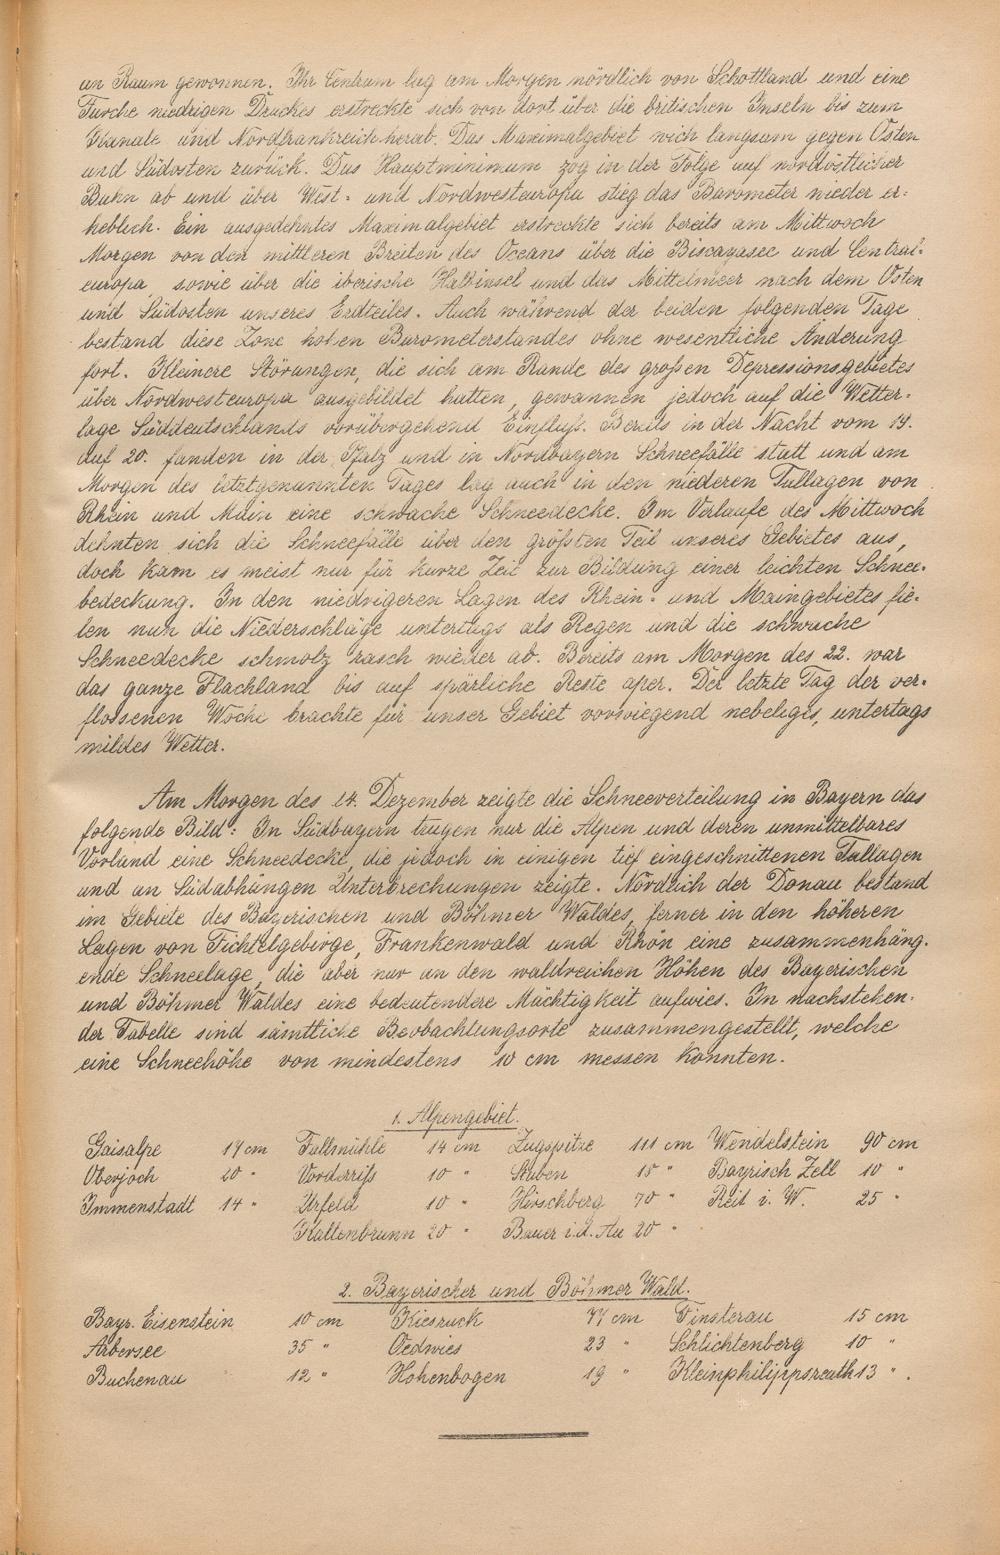 an Raum gewonnen. Ihr Centrum lag am Morgen nördlich von Schottland und eine
Furche niedrigen Druckes erstreckte sich von dort über die britischen Inseln bis zum
Kanale und Nordfrankreich herab. Das Maximalgebiet wich langsam gegen Osten
und Südosten zurück. Das Hauptminimum zog in der Folge auf nordöstlicher
Bahn ab und über West- und Nordwesteuropa stieg das Barometer wieder er-
heblich. Ein ausgedehntes Maximalgebiet erstreckte sich bereits am Mittwoch
Morgen von den mittleren Breiten des Oceans über die Biscayasee und Central-
europa, sowie über die iberische Halbinsel und das Mittelmeer nach dem Osten
und Südosten unseres Erdteiles. Auch während der beiden folgenden Tage
bestand diese Zone hohen Barometerstandes ohne wesentliche Änderung
fort. Kleinere Störungen, die sich am Rande des großen Depressionsgebietes
über Nordwesteuropa ausgebildet hatten, gewannen jedoch auf die Wetter-
lage Süddeutschlands vorübergehend Einfluß. Bereits in der Nacht vom 19.
auf 20. fanden in der Pfalz und in Nordbayern Schneefälle statt und am
Morgen des letztgenannten Tages lag auch in den niederen Tallagen von
Rhein und Main eine schwache Schneedecke. Im Verlaufe des Mittwoch
dehnten sich die Schneefälle über den größten Teil unseres Gebietes aus,
doch kam es meist nur für kurze Zeit zur Bildung einer leichten Schnee-
bedeckung. In den niedrigeren Lagen des Rhein- und Maingebietes fie-
len nun die Niederschläge untertags als Regen und die schwache
Schneedecke schmolz rasch wieder ab. Bereits am Morgen des 22. war
das ganze Flachland bis auf spärliche Reste aper. Der letzte Tag der ver-
flossenen Woche brachte für unser Gebiet vorwiegend nebeliges, untertags
mildes Wetter.
Am Morgen des 24. Dezember zeigte die Schneeverteilung in Bayern das
folgende Bild: In Südbayern trugen nur die Alpen und deren unmittelbares
Vorland eine Schneedecke, die jedoch in einigen tief eingeschnittenen Tallagen
und an Südabhängen Unterbrechungen zeigte. Nördlich der Donau bestand
im Gebiete des Bayerischen und Böhmer Waldes, ferner in den höheren
Lagen von Fichtelgebirge, Frankenwald und Rhön eine zusammenhäng-
ende Schneelage, die aber nur an den waldreichen Höhen des Bayerischen
und Böhmer Waldes eine bedeutendere Mächtigkeit aufwies. In nachstehen-
der Tabelle sind sämtliche Beobachtungsorte zusammengestellt, welche
eine Schneehöhe von mindestens 10 cm messen konnten.
1. Alpengebiet.
Gaisalpe cm Fallmühle 14 cm Zugspitze 111 cm Wendelstein 90 cm
Oberjoch 20 " Vorderriß 10 " Stuben " Bayrisch Zell 10 "
Immenstadt 14 " Urfeld 10 " Hirschberg 70 " Reit i. W. 25 "
Kaltenbrunn 20 " Bauer i.d. Au 20 "
2. Bayerischer und Böhmer Wald.
Bayr. Eisenstein 10 cm Kiesruck cm Finsterau 15 cm
Arbersee 35 " Oedwies 23 " Schlichtenberg 10 "
Buchenau 12 " Hohenbogen 19 " Kleinphilippsreuth 13 " .